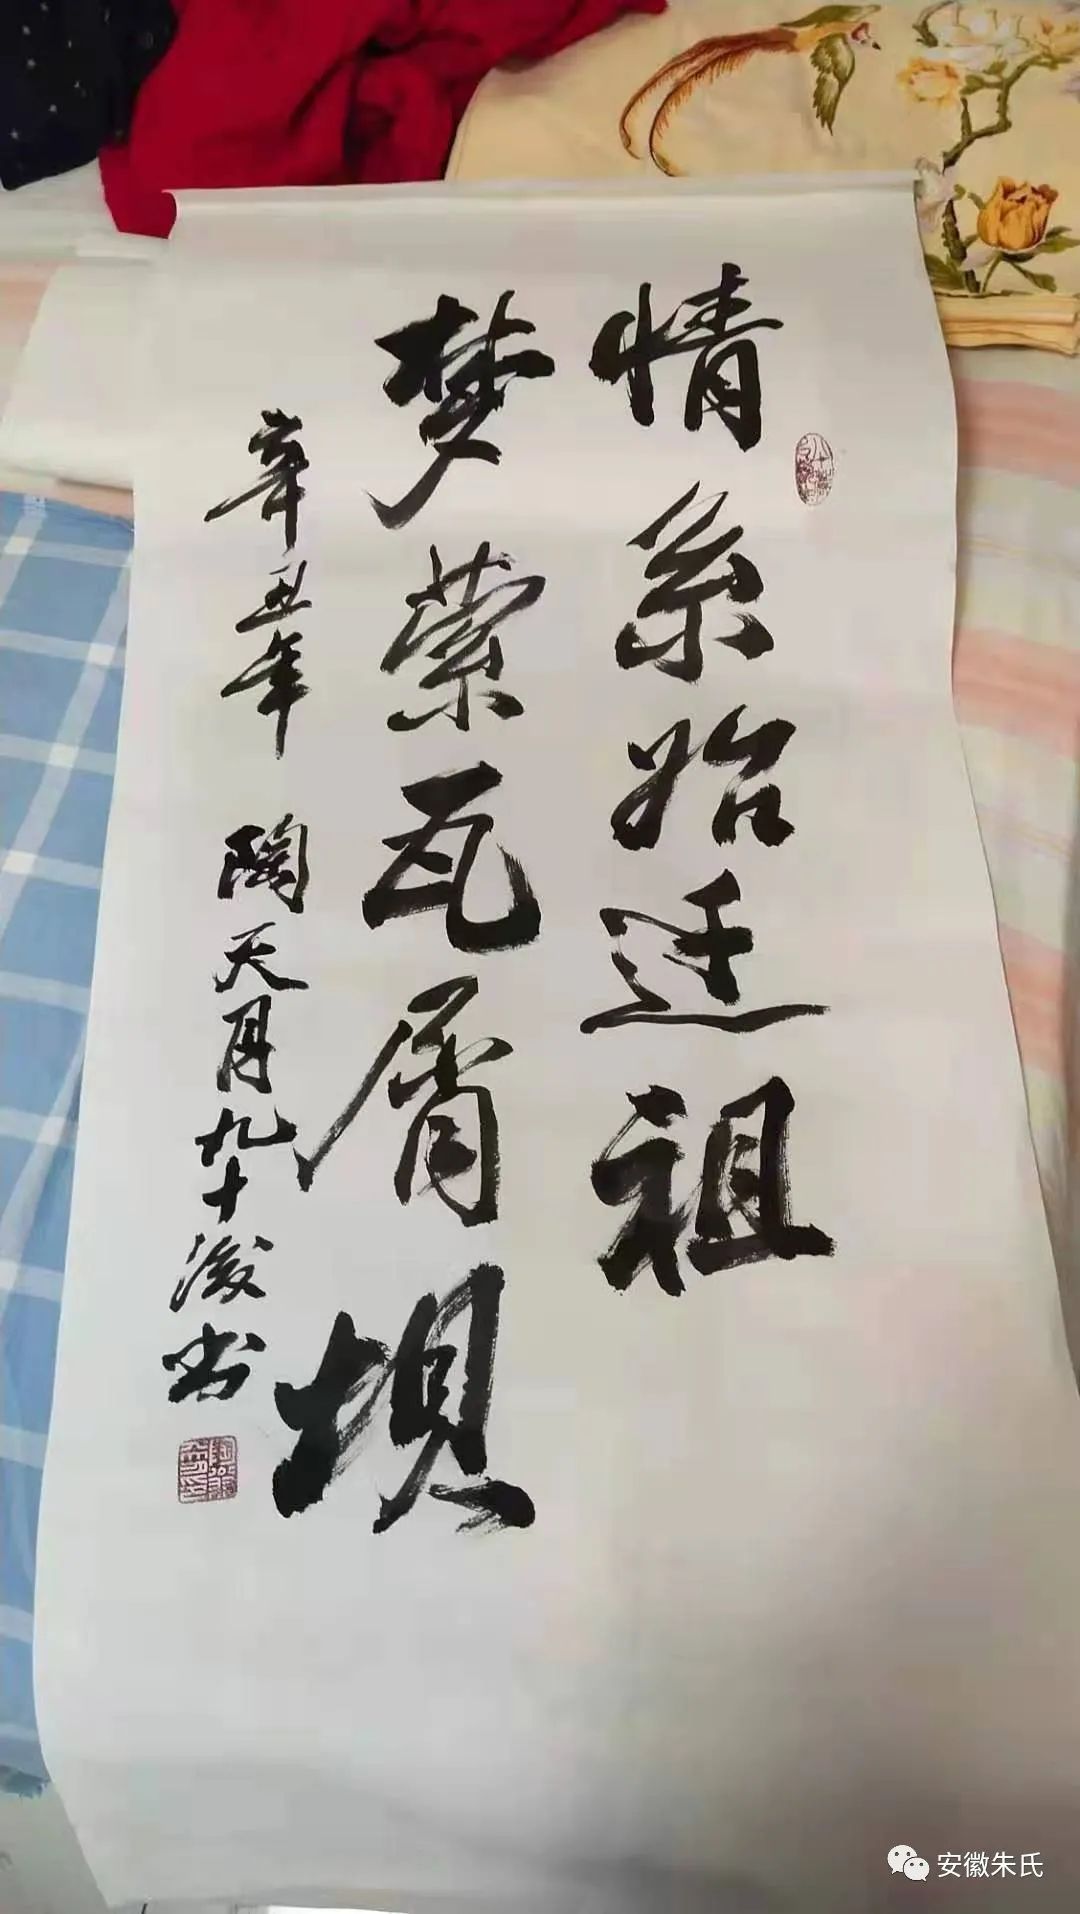 情系始迁祖
梦萦瓦屑坝
辛丑年 陶天月九十后书
安徽朱氏